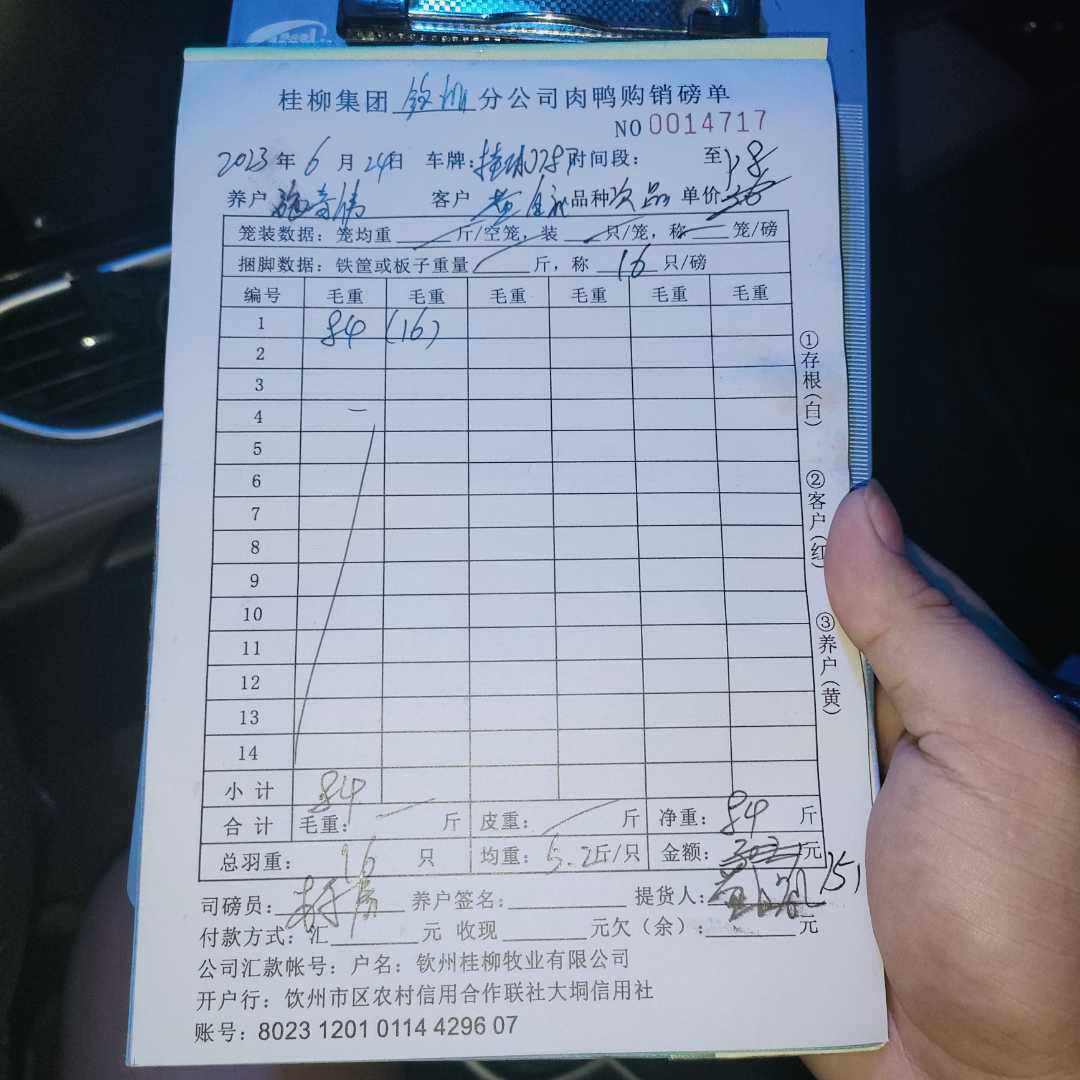 桂柳集团 钦州 分公司肉鸭购销磅单
NO 0014717
2023 年 6 月 24日 车牌: 时间段: 至 1.8
养户 客户 黄 品种 次品 单价
笼装数据: 笼均重 斤/空笼, 装 只/笼, 称 笼/磅
捆脚数据: 铁筐或板子重量 斤, 称 16 只/磅
编号 毛重 毛重 毛重 毛重 毛重 毛重
1 84 (16)
2
3
4
5
6
7
8
9
10
11
12
13
14
小 计 84
合 计 毛重: 斤 皮重: 斤 净重: 84 斤
总羽重: 16 只 均重: 5.2斤/只 金额: 元
151
司磅员: 养户签名: 提货人:
付款方式: 汇 元 收现 元欠(余): 元
公司汇款帐号: 户名: 钦州桂柳牧业有限公司
开户行: 钦州市区农村信用合作联社大垌信用社
账号: 8023 1201 0114 4296 07
①存根(白)
②客户(红)
③养户(黄)